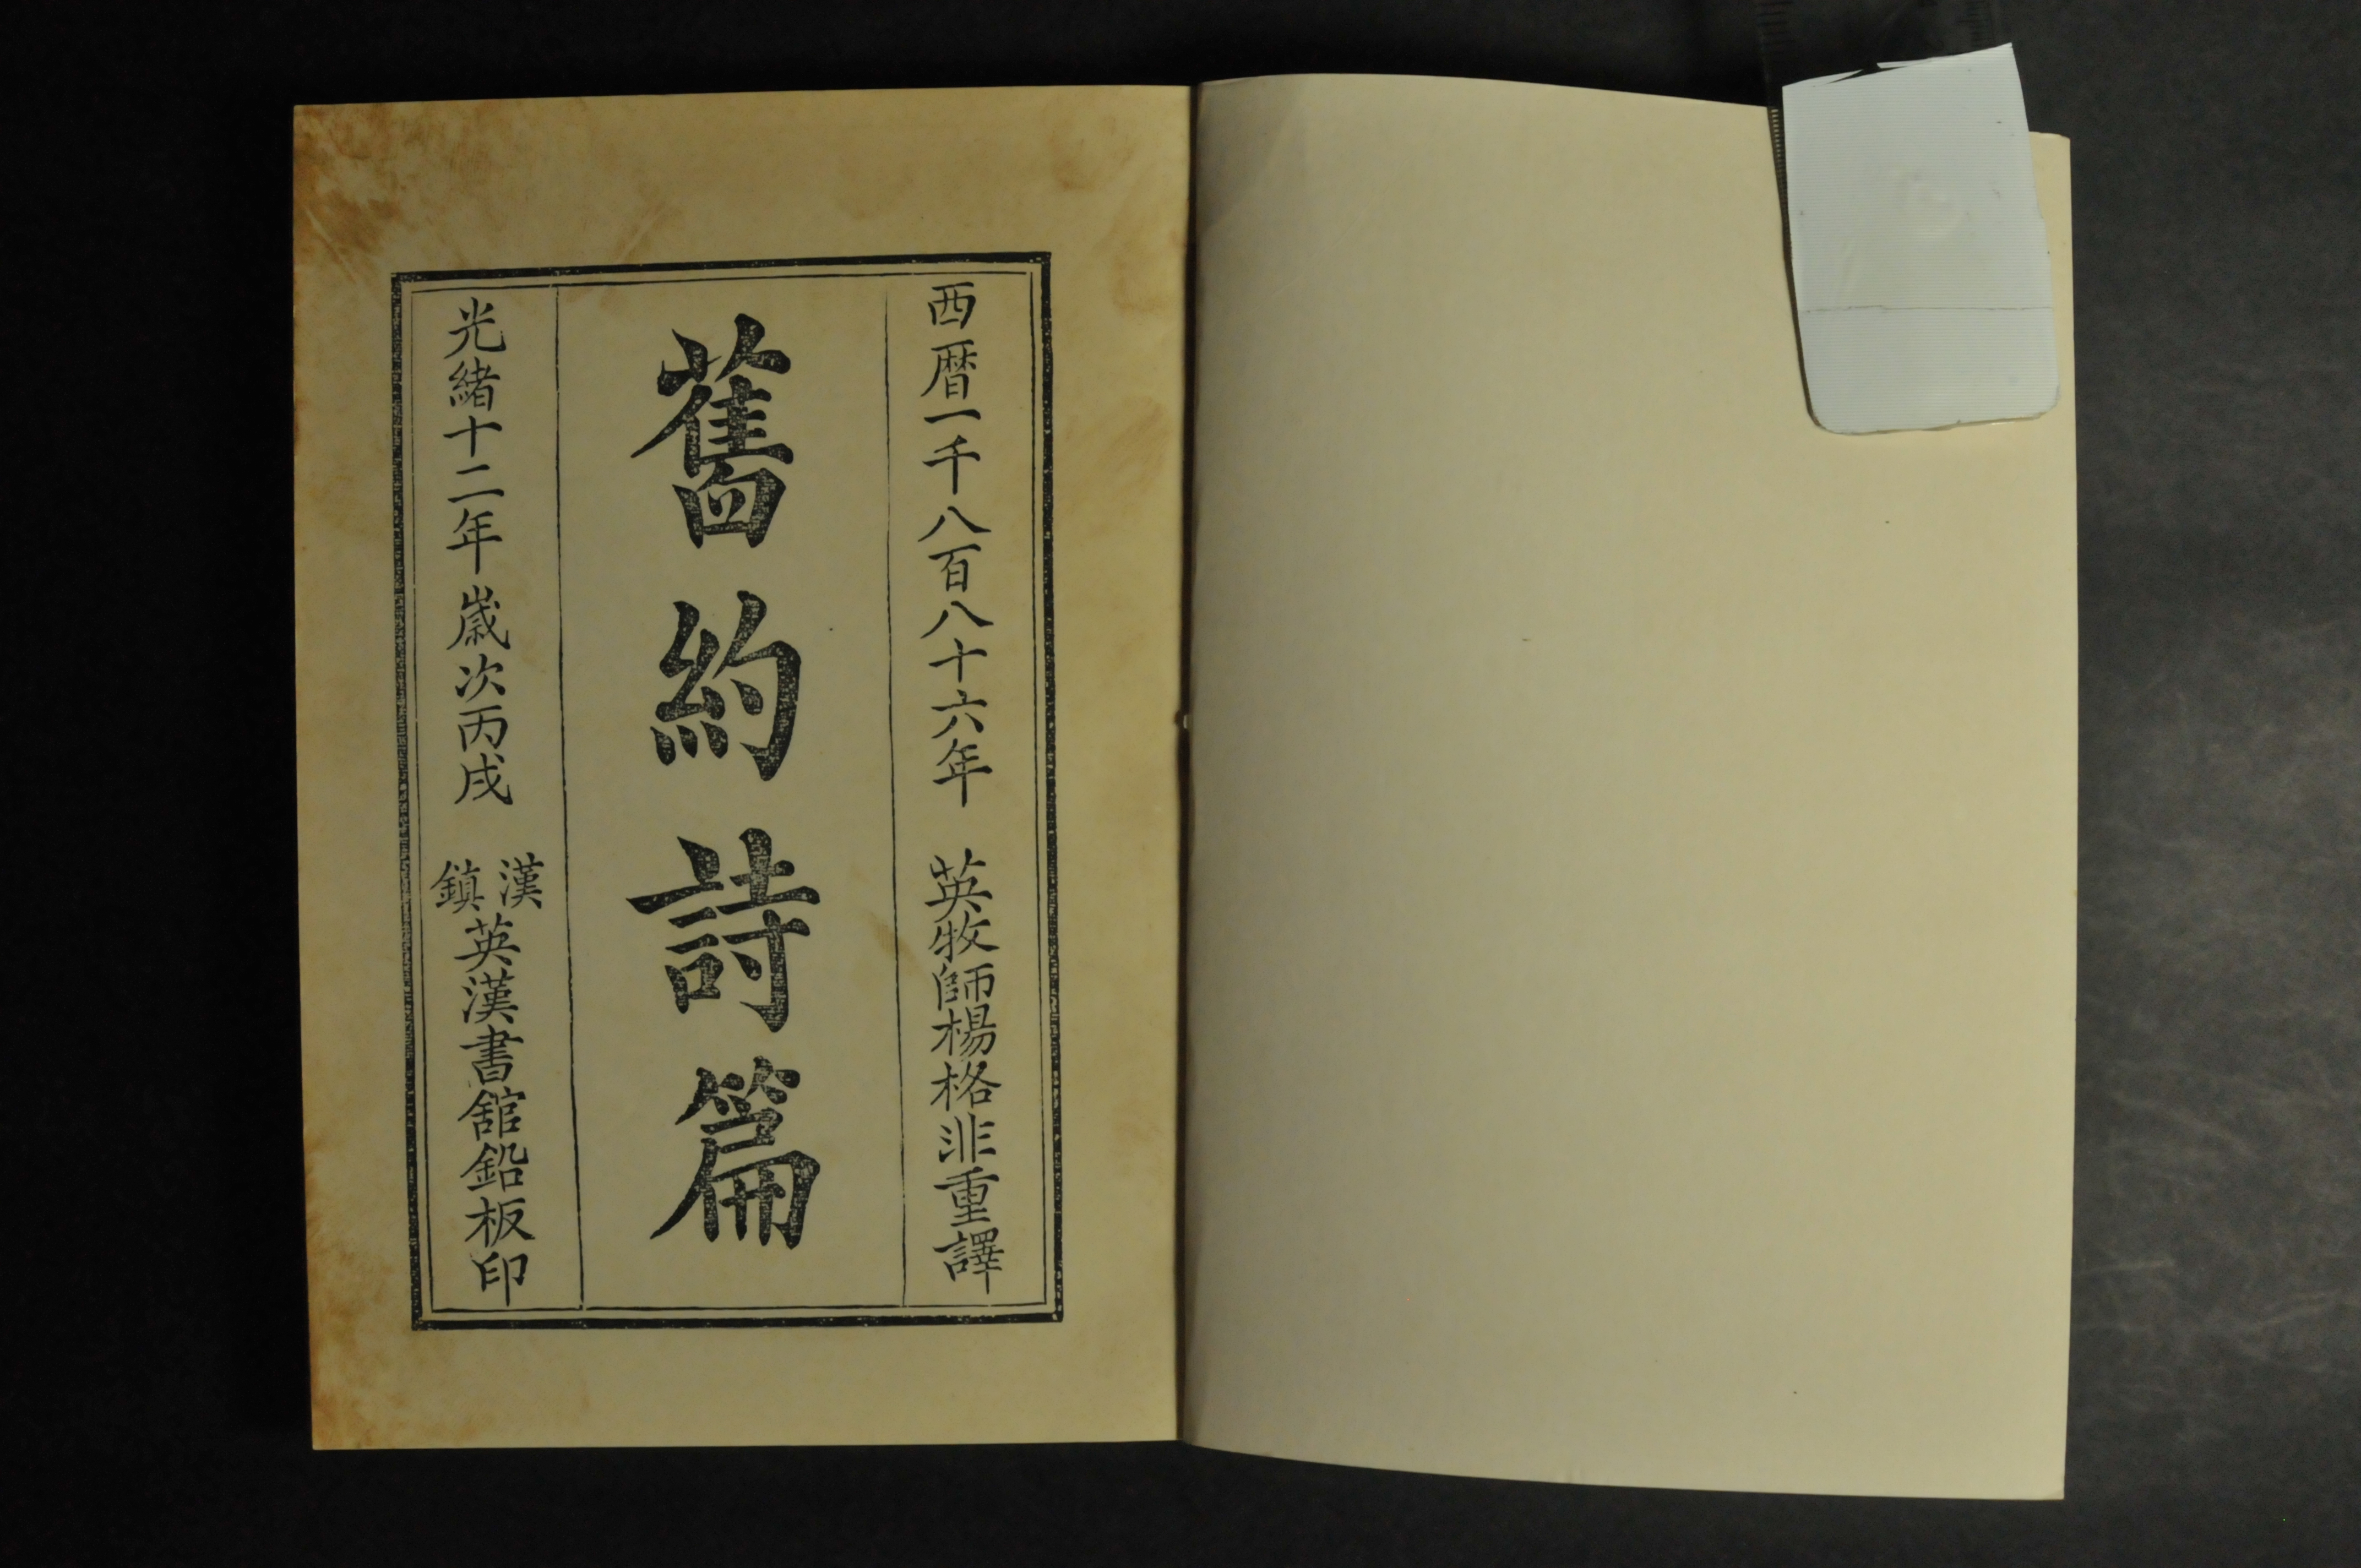 西暦一千八百八十六年 英牧師楊格非重譯
舊約詩篇
光緒十二年歲次丙戌 漢鎮英漢書館鉛板印